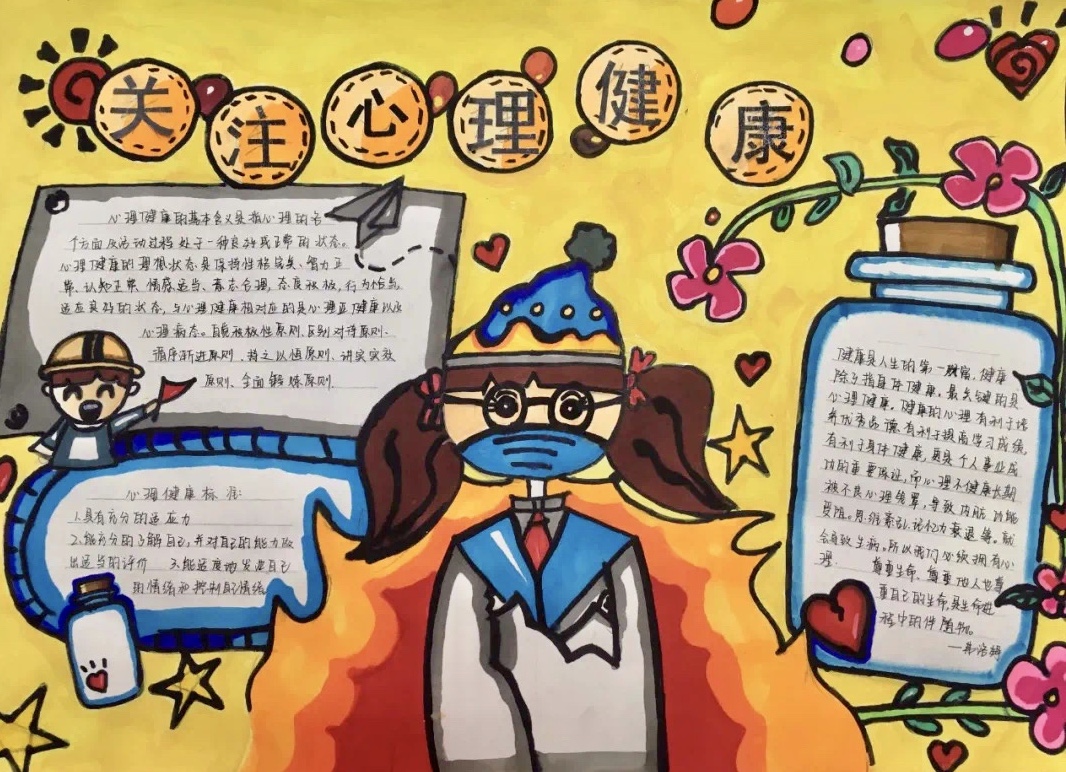 关注心理健康
心理健康的基本含义是指心理的各
个方面及活动过程处于一种良好或正常的状态。
心理健康的理想状态是保持性格完美、智力正
常、认知正确、情感适当、意志合理、态度积极、行为恰当
适应良好的状态。与心理健康相对应的是心理亚健康以及
心理病态。自觉积极性原则、区别对待原则、
循序渐进原则、持之以恒原则、讲实实效
原则、全面锻炼原则
心理健康标准:
1.具有充分的适应力
2.能充分的了解自己,并对自己的能力做
出适当的评价 3.能适度地发泄自己
的情绪和控制自己情绪
健康是人生的第一财富,健康
除了指身体健康,最关键的是
心理健康,健康的心理有利于培
养优秀品德,有利于提高学习成绩,
有利于身体健康,更是个人事业成
功的重要保证,而心理不健康长期
被不良心理笼罩,导致内脏功能
受阻。思维紊乱、记忆力衰退等。就
会导致生病。所以我们必须拥有心
理 尊重生命、尊重他人也尊
重自己的生命,是生命进
程中的伴随物。